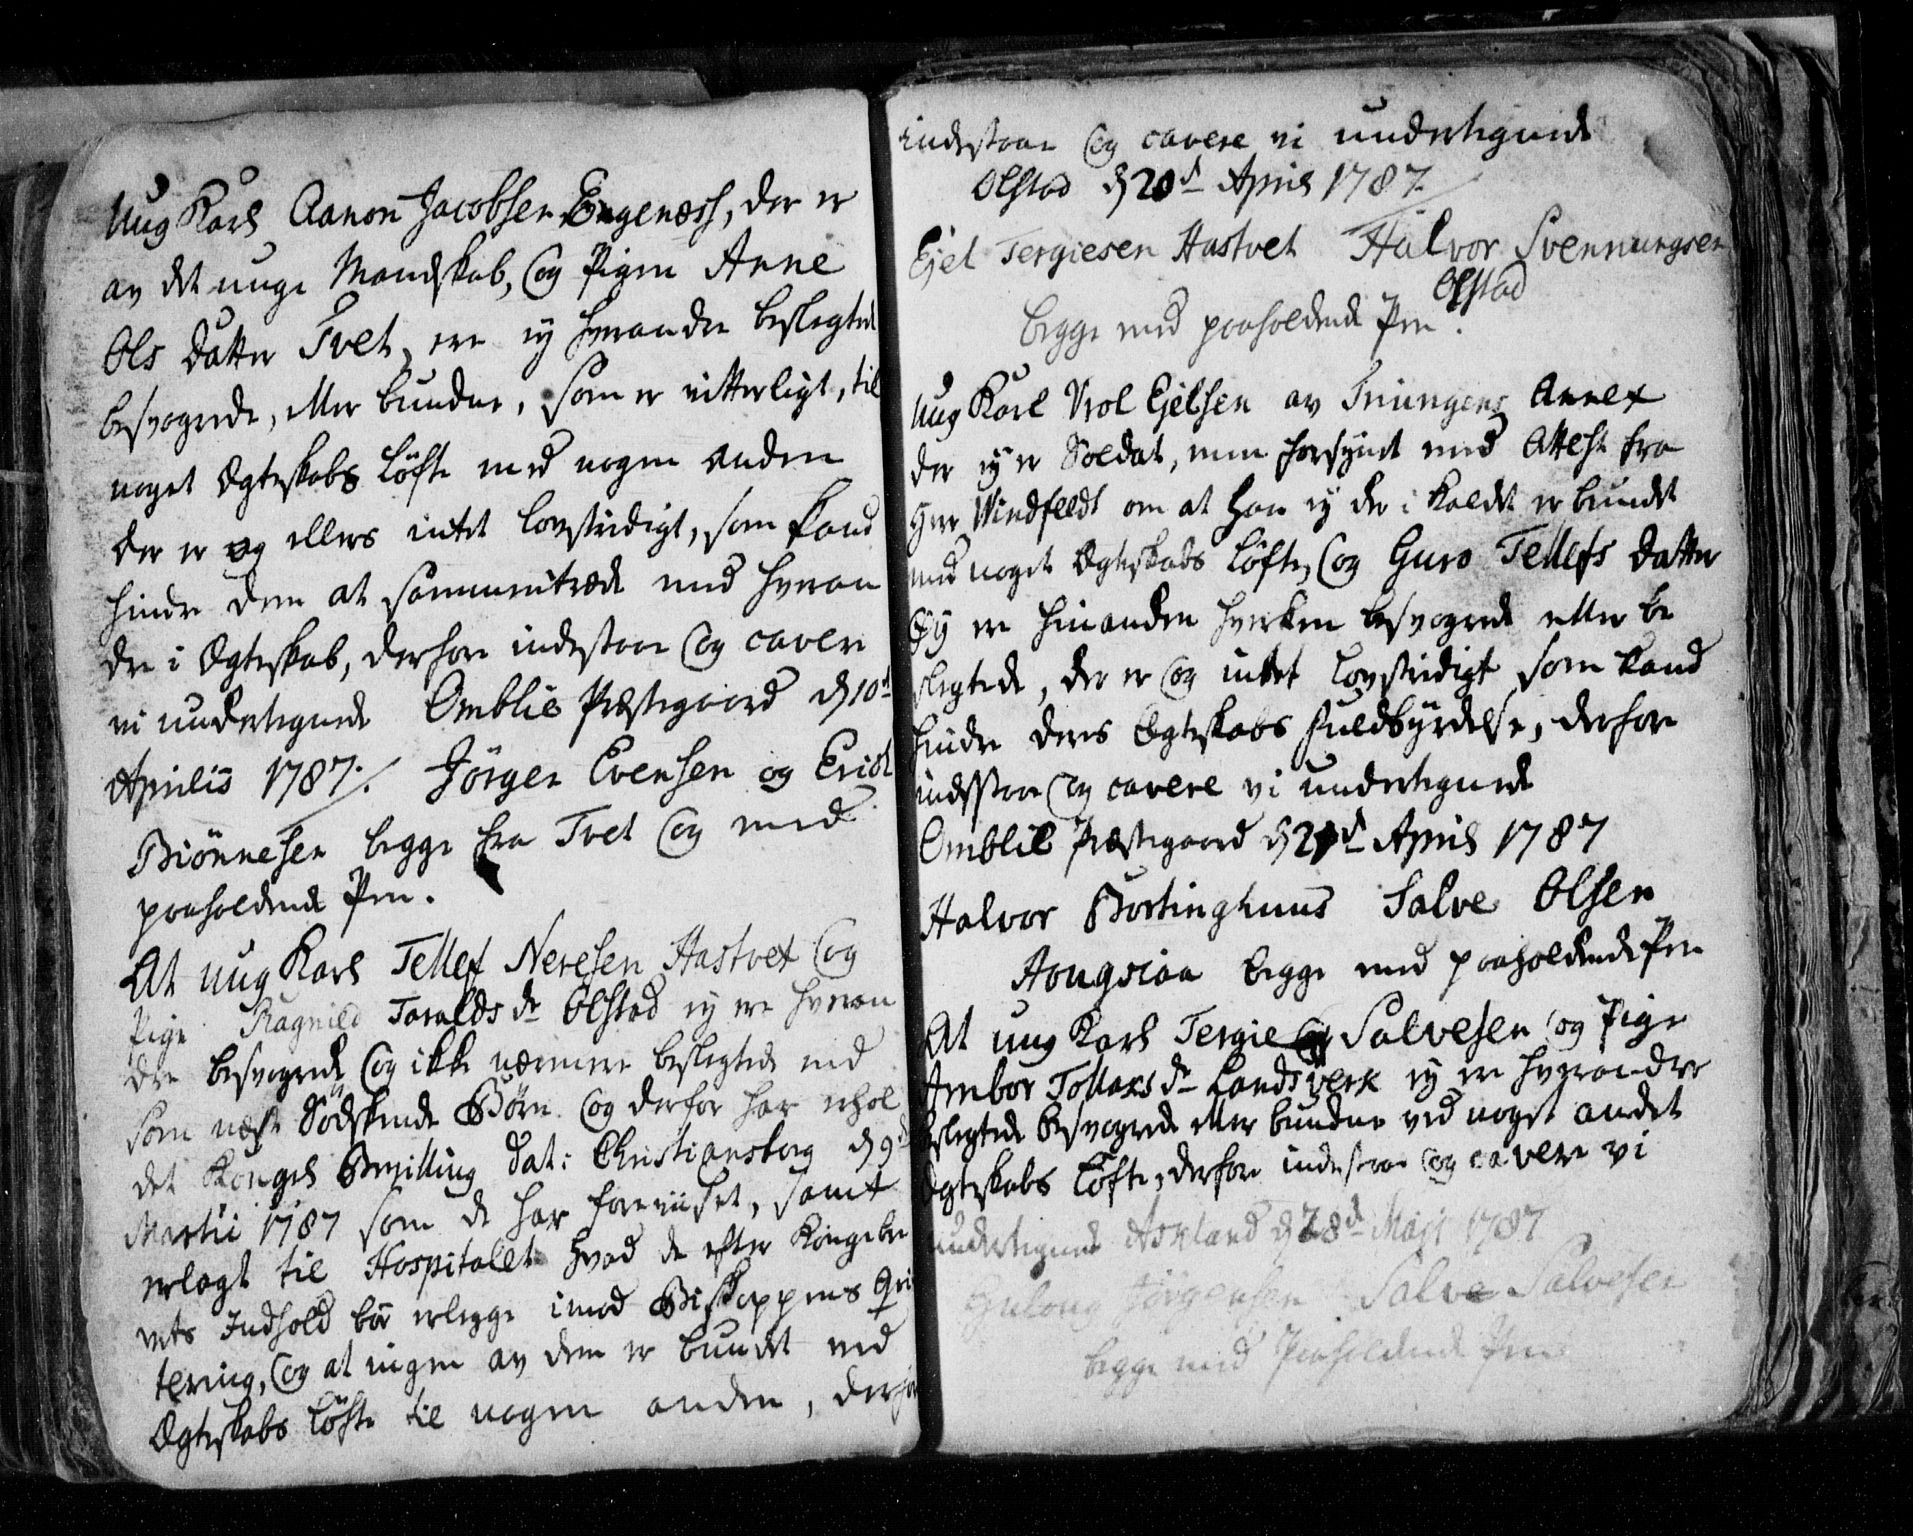 Ung Karl Aanon Jacobsen Engenæss, der er
av det unge Mandskab, og Pigen Anne
Ols Datter Tvet, ere ej hverandre beslegtede
besvogrede, eller bundne, som er vitterligt, til
noget Ægteskabs Løfte med nogen anden
der er og ellers intet lovstridigt, som kand
hindre dem at sammentræde med hveran
dre i Ægteskab, derfore indestaae og cavere
vi undertegnede Omblie Præstegaard d 10d
Aprilis 1787 ./. Jörgen Evensen og Erick
Biönnesen begge fra Tvet og med
paaholdende Pen.
At ung Karl Tellef Neresen Hastvet og
Pige Ragnild Taralds dr Olstad ej ere hveran
dre besvogrede og ikke nærmere beslegtede end
som næst Södskende Børn og derfor har erhol
det Konges Bevilling dat: Christiansborg d 9d
Martii 1787 som de har foreviiset, samt
erlagt til Hospitalet hvad de efter Kongebre
vets Indhold bör erlegge imod Biskoppens Qvi
tering, og at ingen av dem er bundet ved
Ægteskabs Løfte til nogen anden, derfor
indestaae og cavere vi undertegnede
Olstad d 20d April 1787 /
Ejel Tergiesen Hastvet Halvor Svennungsen
Olstad
begge med paaholdende Pen.
Ung Karl Vrol Ejelsen av Triungens Annex
der ej er Soldat, men forsynt med Attest fra
Herr Windfeldt om at han ej der i Kaldet er bundet
med noget Ægteskabs Løfte, og Guro Tellefs Datter
Ey ere hinanden hverken besvogrede eller be
slegtede, der er og intet lovstridigt som kand
hindre deres Ægteskabs Fuldbyrdelse, derfore
indestaae og cavere vi undertegnede
Omblie Præstegaard d 21d April 1787
Halvor Bortinghuus Salve Olsen
Hougsiaa begge med paaholdende Pen
At ung Karl Tergie Salvesen og Pige
Ambor Tollaks dr Landsverk ej ere hverandre
beslegtede besvogrede eller bundne ved noget andet
Ægteskabs Løfte, derfore indestaae og cavere vi
undertegnede Askland d 28d Maji 1787
Jörgensen Salve Salvesen
begge med Paaholdende Pen